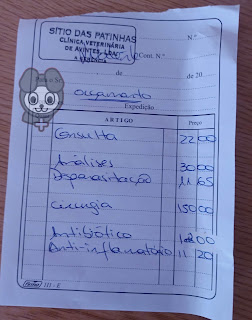 SÍTIO DAS PATINHAS
CLÍNICA VETERINÁRIA
DE AVINTES, LDA.
A GERÊNCIA
N.º
Cont. N.º
de de 20
orçamento
Expedição
ARTIGO Preço
Consulta 22 00
Análises 30 00
Desparasitação 11 65
Cirurgia 150 00
Antibiótico 00
Anti-inflamatório 11 20
III - E